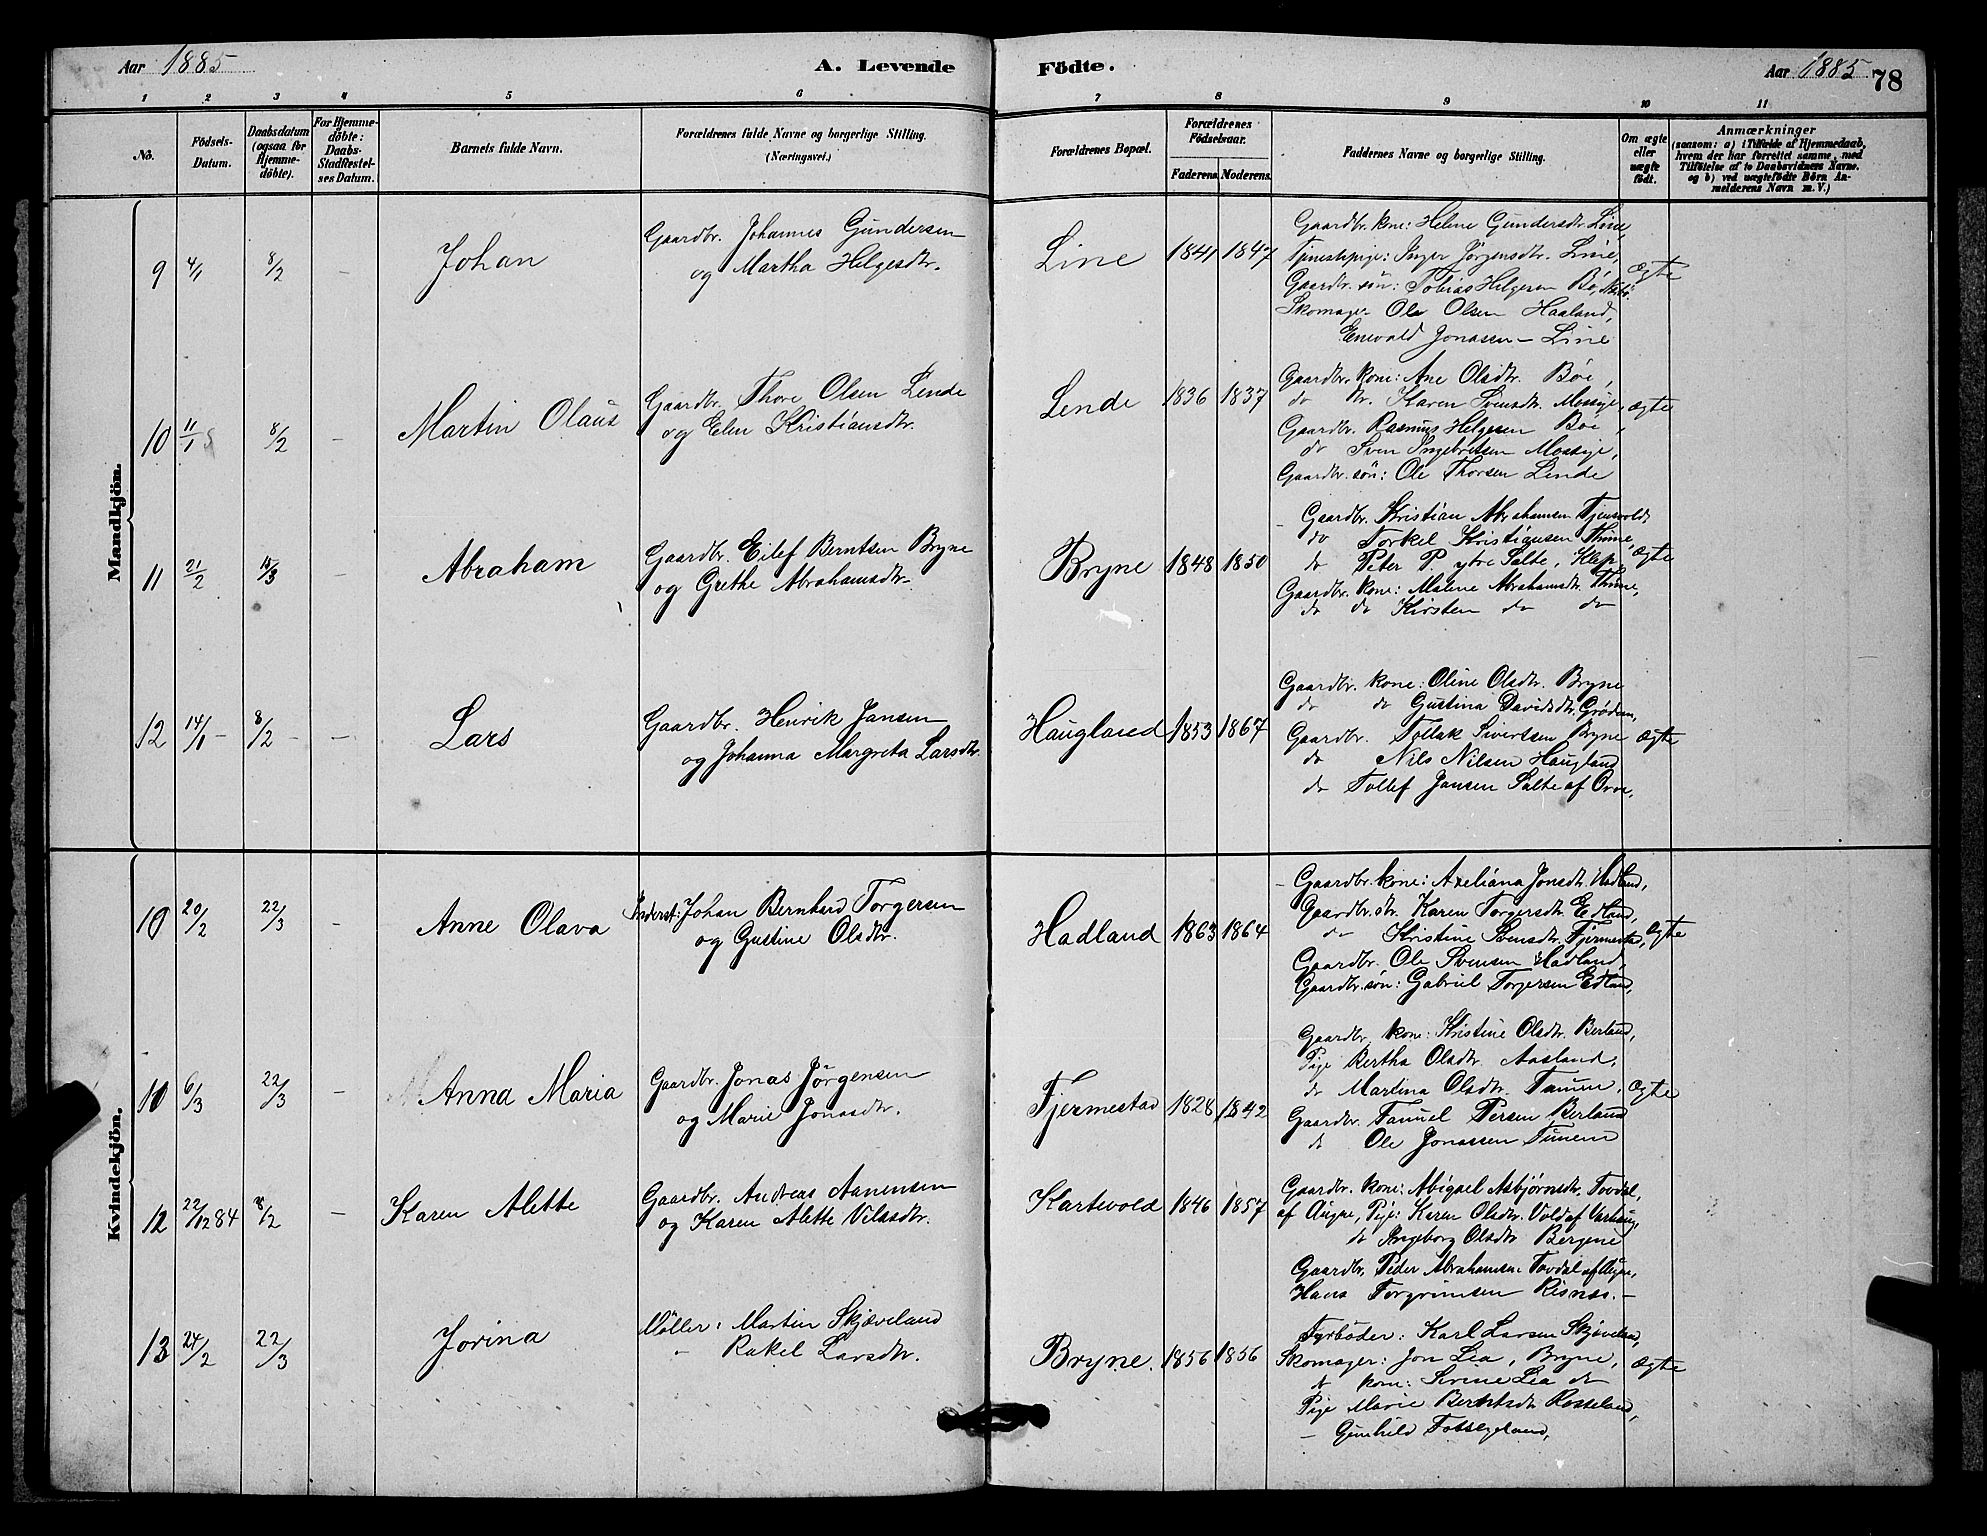 Aar 1885
A. Levende
Födte.
Aar 1885
78
1 2 3 4 5 6 7 8 9 10 11
No.
Födsels-
Datum.
Daabsdatum
(ogsaa for
Hjemme-
döbte).
For Hjemme-
döbte:
Daabs-
Stadfestel-
ses Datum.
Barnets fulde Navn.
Forældrenes fulde Navne og borgerlige Stilling.
(Næringsvei.)
Forældrenes Bopæl.
Forældrenes
Födselsaar.
Faderens. Moderens.
Faddernes Navne og borgerlige Stilling.
Om ægte
eller
uægte
födt.
Anmærkninger
(saasom: a) i Tilfælde af Hjemmedaab,
hvem der har forrettet samme, med
Tilföielse af to Daabsvidners Navne.
og b) ved uægtefödte Börn An-
melderens Navn m. V.)
Mandkjön.
9 4/1 8/2 – Johan
Gaardbr. Johannes Gundersen
og Martha Helgesdtr.
Line 1841 1847
Gaardbr. kone: Helene Gundersdtr. Line,
Tjenestepige: Inger Jörgensdtr. Line,
Gaardbr. sön: Tobias Helgesen Bö,
Skomager Ole Olsen Haaland,
Enevald Jonassen – Line
ægte
10 11/1 8/2 – Martin Olaus
Gaardbr. Thore Olsen Lende
og Elen Kristiansdtr.
Lende 1836 1837
Gaardbr. kone: Ane Olsdtr. Böe,
do Karen Svensdtr. Mossige,
Gaardbr. Rasmus Helgesen Böe,
do Sven Ingebretsen Mossige,
Gaardbr. sön: Ole Thorsen Linde
ægte
11 21/2 /3 – Abraham
Gaardbr. Eilef Berntsen Bryne
og Grethe Abrahamsdtr.
Bryne 1848 1850
Gaardbr. Kristian Abrahamsen
do Torkel Kristiansen Thime,
do Peter P. ytre Salte, Klep,
Gaardbr. kone: Malene Abrahamsdtr. Thime,
do do Kirsten do do
ægte
12 14/1 – 8/2 – – Lars
Gaardbr. Henrik Jansen
og Johanna Margreta Larsdtr.
Haugland 1853 1867
Gaardbr. kone: Oline Olsdtr. Bryne
do do Gustina Davidsdtr. Grödem,
Gaardbr. Tollak Sivertsen Bryne
do Nils Nilsen Haugland
do Tollef Jansen Salte af Orre,
ægte
Kvindekjön.
10 20/2 22/3 – Anne Olava
Inderst: Johan Bernhard Torgersen
og Gustine Olsdtr.
Hadland 1863 1864
– Gaardbr. kone: Axeliana Jonsdtr. Hadland,
Gaardbr. dtr. Karen Torgersdtr. Edland,
do Kristine Svensdtr. Fjermestad,
Gaardbr. Ole Svensen Hadland,
Gaardbr. sön: Gabriel Torgersen Edland,
ægte
6/3 22/3 – Anna Maria
Gaardbr. Jonas Jörgensen
og Marie Jonasdtr.
Fjermestad 1828 1842
Gaardbr. kone: Kristine Olsdtr. Berland,
Pige Bertha Olsdtr. Aasland,
do Martina Olsdtr. Tauem,
Gaardbr. Samuel Persen Berland
do Ole Jonassen Tunem
ægte
12 22/12 84 8/2 – Karen Alette
Gaardbr. Andreas Aanensen
og Karen Alette Vilasdtr.
Kartevold 1846 1857
Gaardbr. kone: Abigael Asbjörnsdtr. Tovdal,
af Augne, Pige: Karen Olsdtr. Vold af Varhaug,
do Ingeborg Olsdtr. Bergene
Gaardbr. Peder Abrahamsen Tovdal af Augne,
Hans Torgrimsen Risnæs. –
13 24/2 22/3 Jorina
Möller: Martin Skjæveland
– Rakel Larsdtr.
Bryne. 1856 1856
Fyrböder: Karl Larsen Skjæveland
Skomager: Jon Lea, Bryne,
do kone: Serine Lea do
Pige Marie Berntsdtr. Rosseland,
– Gunhild
ægte